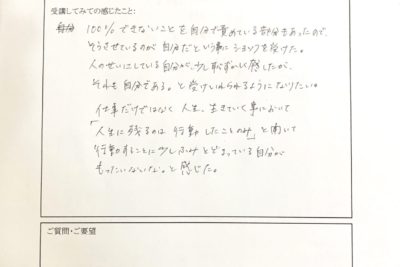 受講してみての感じたこと:
100%できないことを自分で責めている部分もあったので、
そうさせているのが自分だという事にショックを受けた。
人のせいにしている自分が、少し恥ずかしく感じたが、
それも自分である。と受け入れられるようになりたい。
仕事だけではなく、人生、生きていく事において
「人生に残るのは行動したことのみ」と聞いて
行動することに少しふみとどまっている自分が
もったいないな。と感じた。
ご質問・ご要望